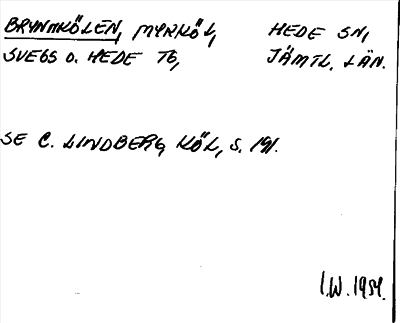 BRYNNKÖLEN, MYRKÖL, HEDE SN,
SVEGS O. HEDE TG, JÄMTL. LÄN.
SE C. LINDBERG, KÖL, S. 191.
I.W. 1954.